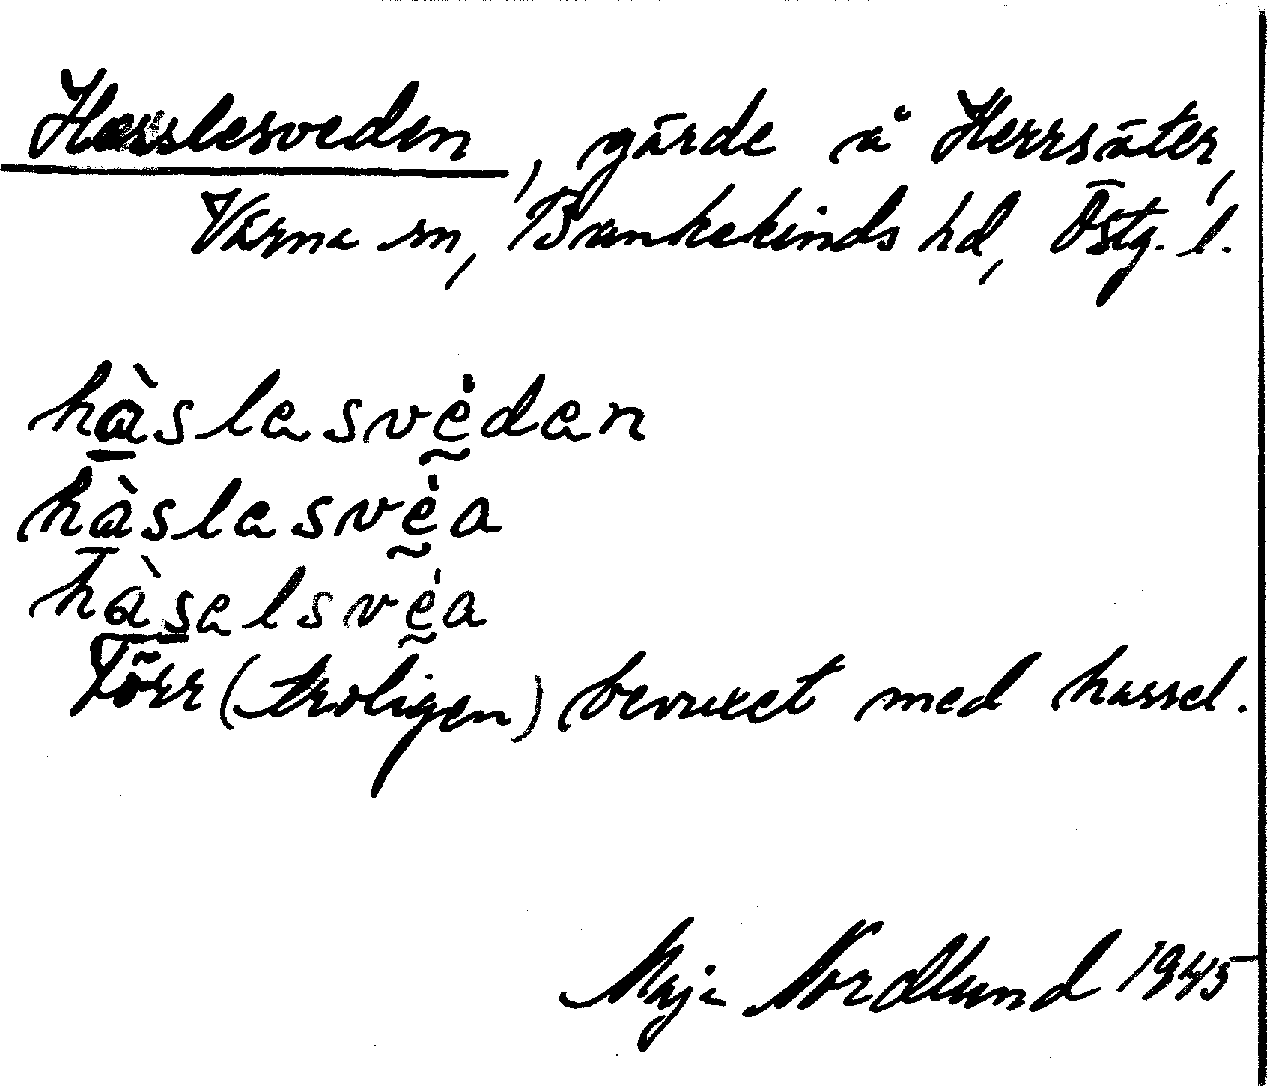 Hasslesveden, gärde å Herrsäter,
Värna sn, Bankekinds hd, Östg. l.
hàslesvèden
hàslesvèa
hàselsvèa
Förr (troligen) bevuxet med hassel.
Maja Nordlund 1945